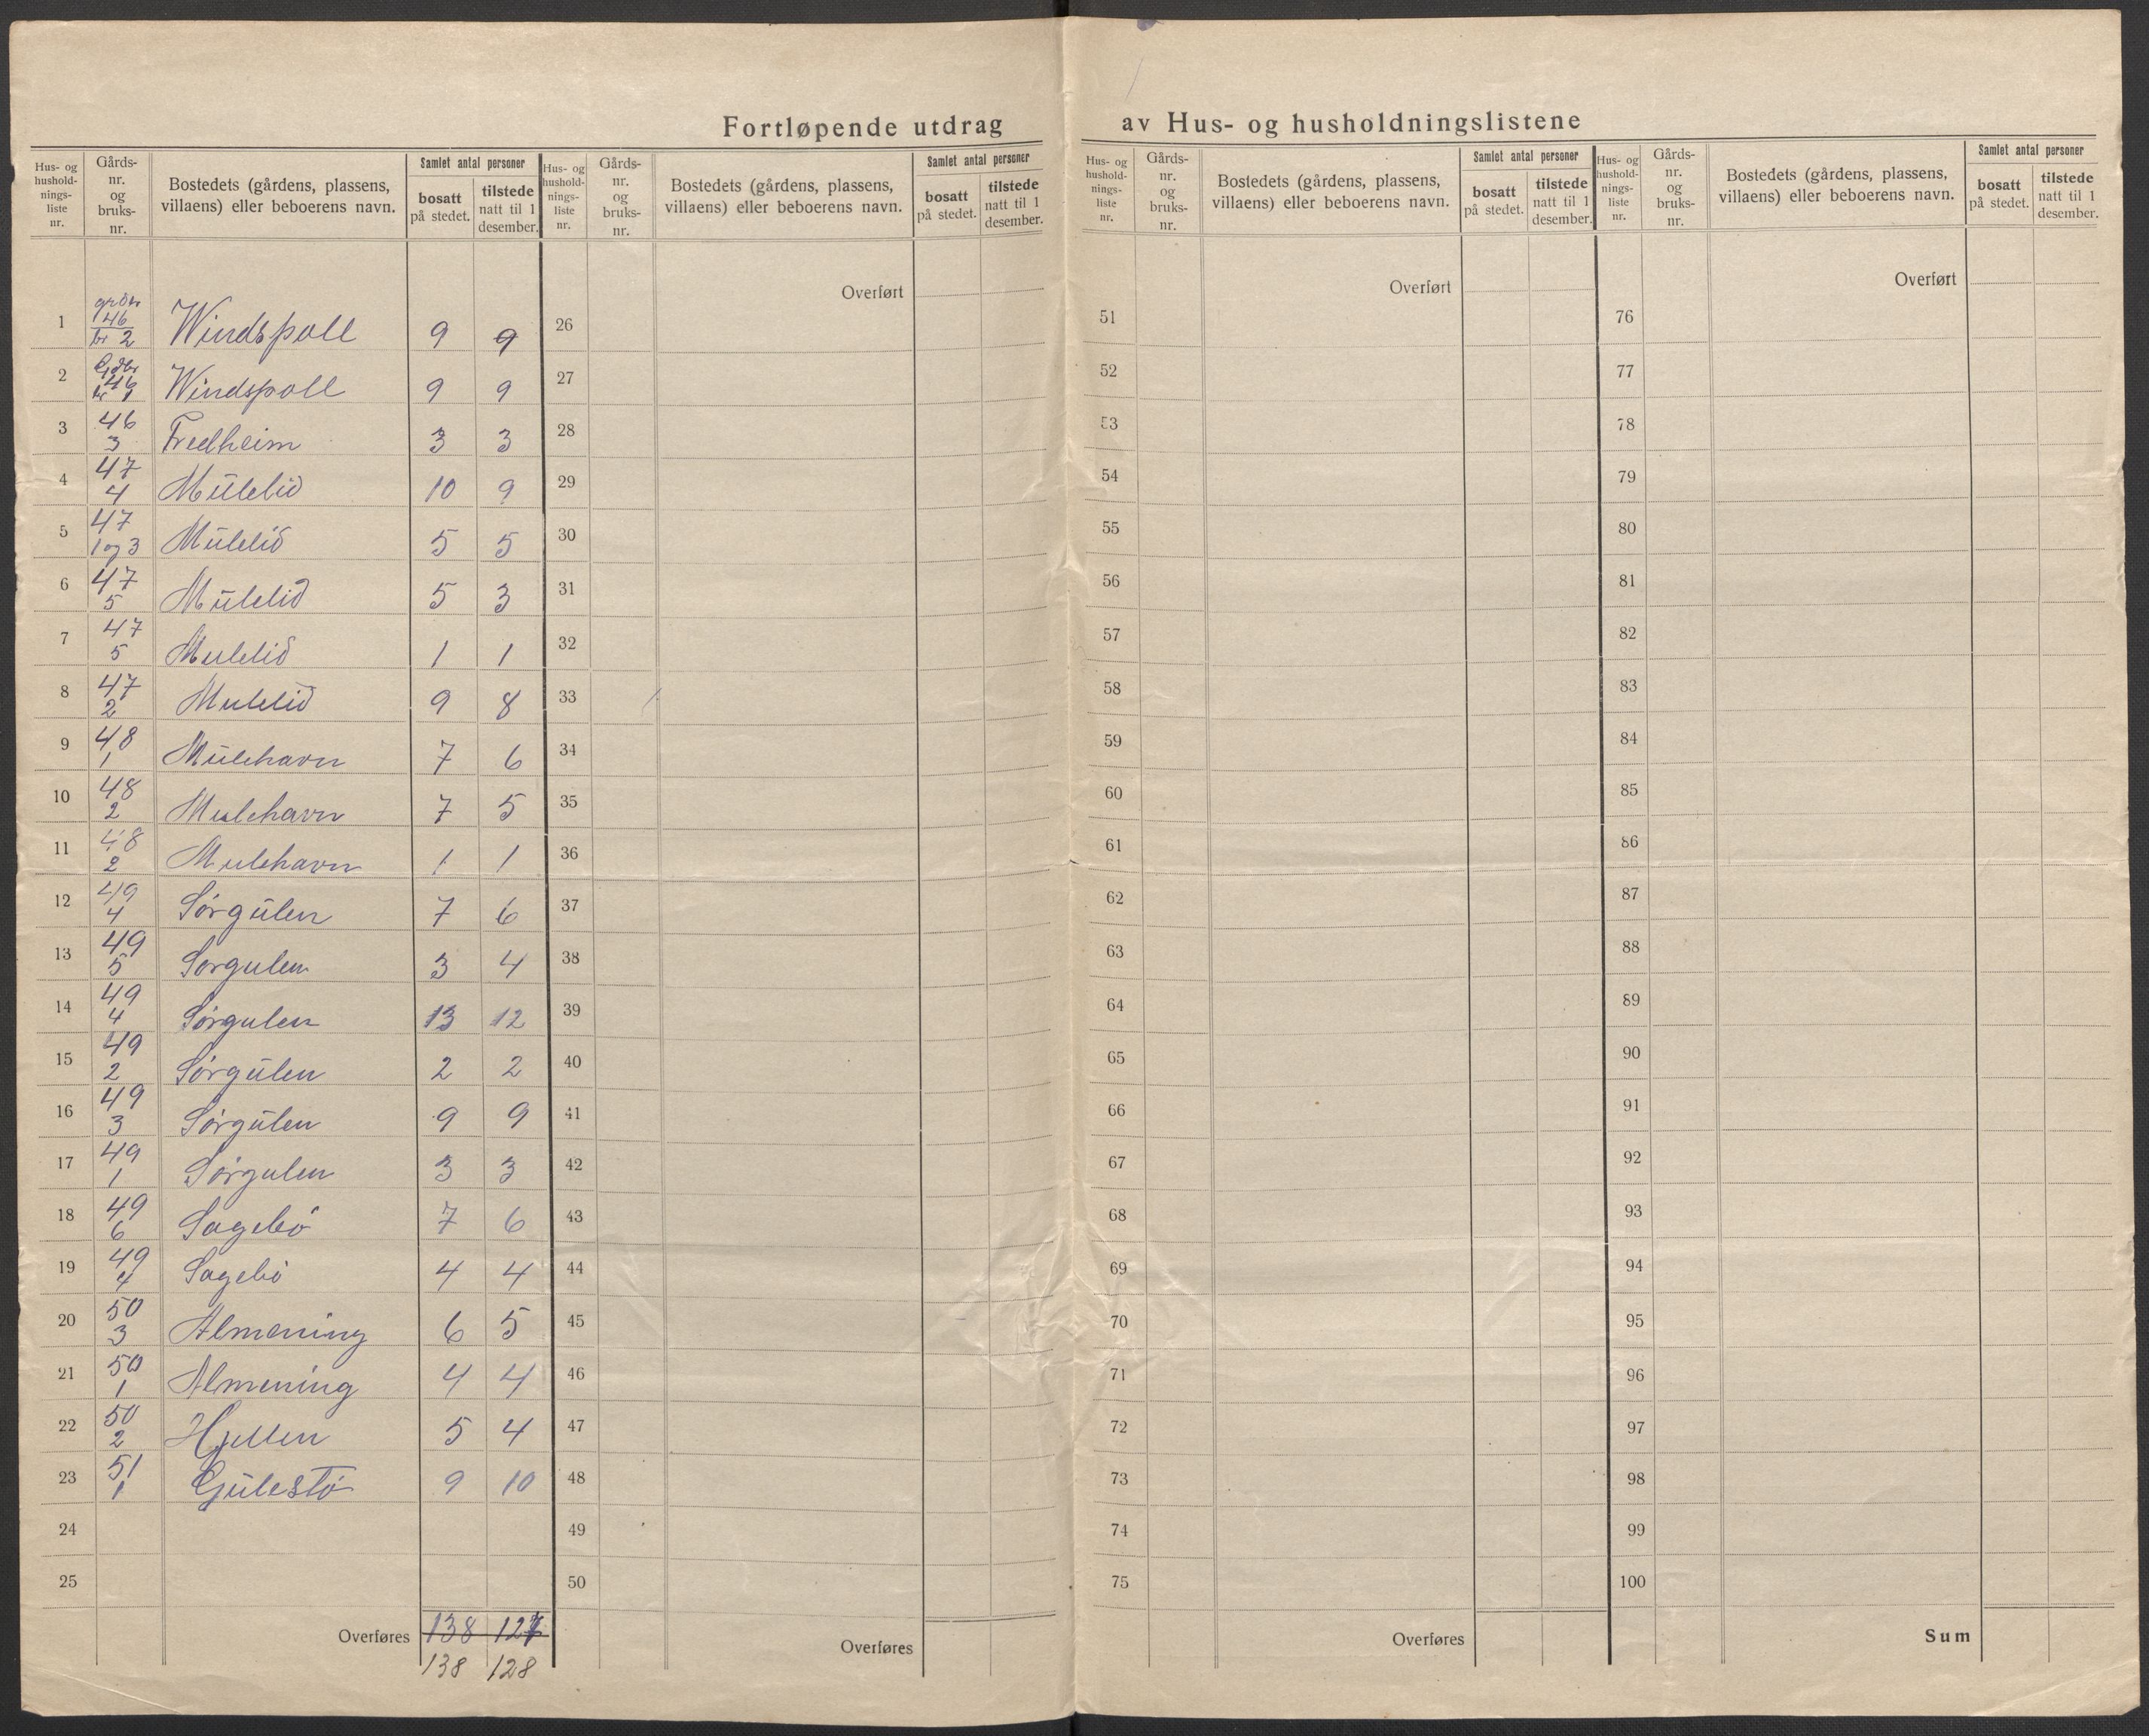 Fortløpende utdrag av Hus- og husholdningslistene
Hus- og hushold-nings-liste nr. Gårds-nr. og bruks-nr. Bostedets (gårdens, plassens, villaens) eller beboerens navn. Samlet antal personer bosatt på stedet. tilstede natt til 1 desember.
Hus- og hushold-nings-liste nr. Gårds-nr. og bruks-nr. Bostedets (gårdens, plassens, villaens) eller beboerens navn. Samlet antal personer bosatt på stedet. tilstede natt til 1 desember.
Hus- og hushold-nings-liste nr. Gårds-nr. og bruks-nr. Bostedets (gårdens, plassens, villaens) eller beboerens navn. Samlet antal personer bosatt på stedet. tilstede natt til 1 desember.
Hus- og hushold-nings-liste nr. Gårds-nr. og bruks-nr. Bostedets (gårdens, plassens, villaens) eller beboerens navn. Samlet antal personer bosatt på stedet. tilstede natt til 1 desember.
Overført Overført Overført
1 146 br 2 Windspoll 9 9 26 51 76
2 146 br 1 Windspoll 9 9 27 52 77
3 46 3 Fredheim 3 3 28 53 78
4 47 4 Mulelid 10 9 29 54 79
5 47 1 og 3 Mulelid 5 5 30 55 80
6 47 5 Mulelid 5 3 31 56 81
7 47 5 Mulelid 1 1 32 57 82
8 47 2 Mulelid 9 8 33 58 83
9 48 1 Mulehavn 7 6 34 59 84
10 48 2 Mulehavn 7 5 35 60 85
11 48 2 Mulehavn 1 1 36 61 86
12 49 4 Sørgulen 7 6 37 62 87
13 49 5 Sørgulen 3 4 38 63 88
14 49 4 Sørgulen 13 12 39 64 89
15 49 2 Sørgulen 2 2 40 65 90
16 49 3 Sørgulen 9 9 41 66 91
17 49 1 Sørgulen 3 3 42 67 92
18 49 6 Sagebø 7 6 43 68 93
19 49 4 Sagebø 4 4 44 69 94
20 50 3 Almening 6 5 45 70 95
21 50 1 Almening 4 4 46 71 96
22 50 2 Hjellen 5 4 47 72 97
23 51 1 Gulestø 9 10 48 73 98
24 49 74 99
25 50 75 100
Overføres 138 127 Overføres Overføres Sum
138 128